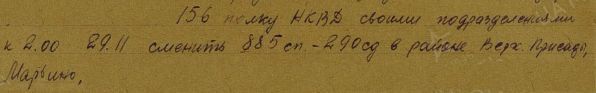 156 полку НКВД своими подразделениями
к 2.00 29.11 сменить 885 сп.-290сд в районе Верх. Присады,
Марьино.